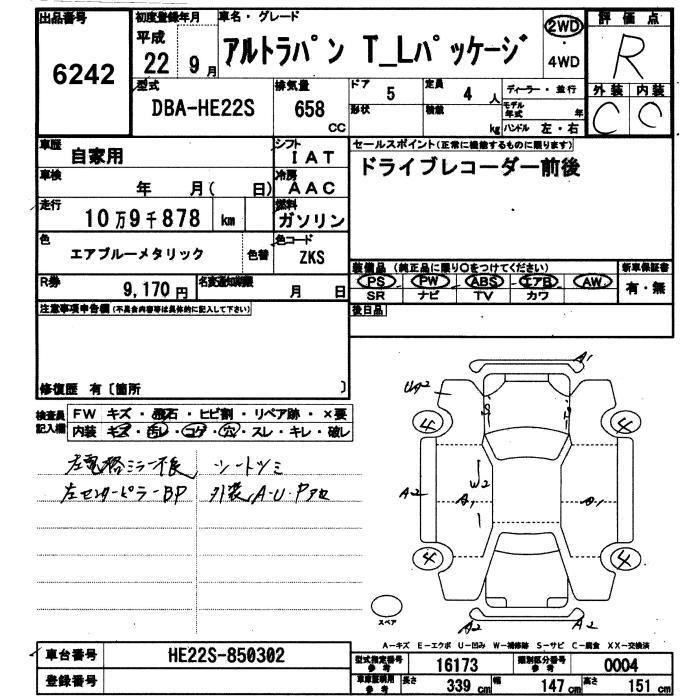 出品番号 初度登録年月 車名・グレード 評価点
6242 平成 22年 9月 アルトラパン T_Lパッケージ 2WD・4WD R
型式 排気量 ドア 5 定員 4人 ディーラー・並行 外装 内装
DBA-HE22S 658 CC 形状 積載 kg モデル年式 年 C C
ハンドル 左・右
車歴 自家用 シフト IAT セールスポイント(正常に機能するものに限ります)
車検 年 月( 日) 冷房 AAC ドライブレコーダー前後
走行 10万9千878 km 燃料 ガソリン
色 エアブルーメタリック 色替 色コード ZKS
装備品 (純正品に限り○をつけてください) 新車保証書
R券 9,170円 名変通知期限 月 日 PS PW ABS エアB AW 有・無
SR ナビ TV カワ
注意事項申告欄(不具合内容等は具体的に記入して下さい) 後日品
修復歴 有〔箇所 〕
検査員記入欄 FW キズ・飛石・ヒビ割・リペア跡・×要
内装 キズ・汚レ・コゲ・穴・スレ・キレ・破レ
左電格ミラー不良 シートシミ
左センターピラーBP 外装A・U・P
A1
UA2
S
4 4
A2 W2 A1 A1
4 4
A2 A2
スペア
A-キズ E-エクボ U-凹み W-補修跡 S-サビ C-腐食 XX-交換済
車台番号 HE22S-850302 型式指定番号 参考 16173 類別区分番号 参考 0004
登録番号 車庫証明用 参考 長さ 339cm 幅 147cm 高さ 151cm